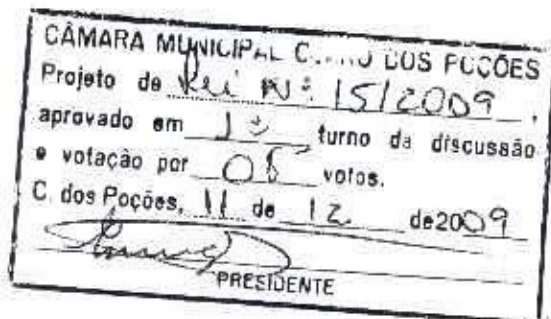 CÂMARA MUNICIPAL DOS POÇÕES
Projeto de Lei Nº 15/2009,
aprovado em 1º turno da discussão
e votação por votos.
C. dos Poções, 11 de 12 de 2009
PRESIDENTE